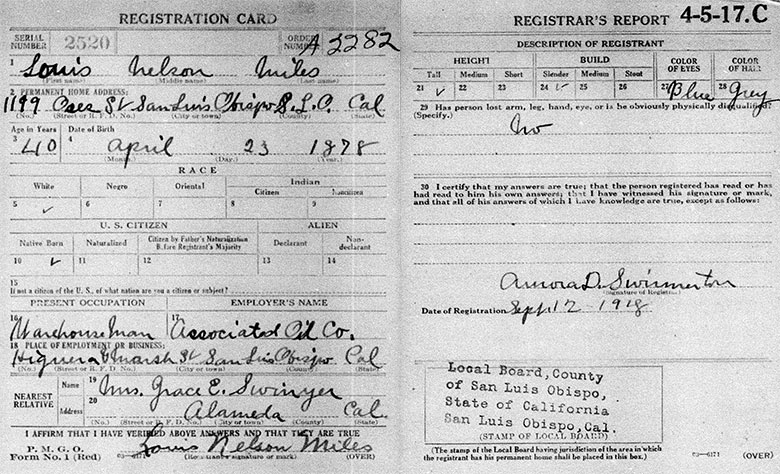 REGISTRATION CARD
SERIAL NUMBER 2520 ORDER NUMBER A2282
1 Louis Nelson Miles
(First name) (Middle name) (Last name)
2 PERMANENT HOME ADDRESS:
1199 St San Luis Obispo S.L.O. Cal
(No.) (Street or R. F. D. No.) (City or town) (County) (State)
Age in Years Date of Birth
3 40 4 April 23 1878
(Month.) (Day.) (Year.)
RACE
White Negro Oriental Indian
Citizen Noncitizen
5 ✓ 6 7 8 9
U. S. CITIZEN ALIEN
Native Born Naturalized Citizen by Father's Naturalization Before Registrant's Majority Declarant Non-declarant
10 ✓ 11 12 13 14
15
If not a citizen of the U. S., of what nation are you a citizen or subject?
PRESENT OCCUPATION EMPLOYER'S NAME
16 Warehouse Man 17 Associated Oil Co.
18 PLACE OF EMPLOYMENT OR BUSINESS:
Higuera & Marsh St San Luis Obispo Cal
(No.) (Street or R. F. D. No.) (City or town) (County) (State)
NEAREST RELATIVE Name 19 Mrs. Grace E. Swinyer
Address 20 Alameda Cal.
(No.) (Street or R. F. D. No.) (City or town) (County) (State)
I AFFIRM THAT I HAVE VERIFIED ABOVE ANSWERS AND THAT THEY ARE TRUE
P. M. G. O.
Form No. 1 (Red) Louis Nelson Miles
(Registrant's signature or mark) (OVER)
REGISTRAR'S REPORT 4-5-17.C
DESCRIPTION OF REGISTRANT
HEIGHT BUILD COLOR OF EYES COLOR OF HAIR
Tall Medium Short Slender Medium Stout
21 ✓ 22 23 24 ✓ 25 26 27 Blue 28 Grey
29 Has person lost arm, leg, hand, eye, or is he obviously physically disqualified?
(Specify.) No
30 I certify that my answers are true; that the person registered has read or has
had read to him his own answers; that I have witnessed his signature or mark,
and that all of his answers of which I have knowledge are true, except as follows:
D. Swinnerton
(Signature of Registrar)
Date of Registration Sept. 12 1918
Local Board, County
of San Luis Obispo,
State of California
San Luis Obispo, Cal.
(STAMP OF LOCAL BOARD)
(The stamp of the Local Board having jurisdiction of the area in which
the registrant has his permanent home shall be placed in this box.) (OVER)